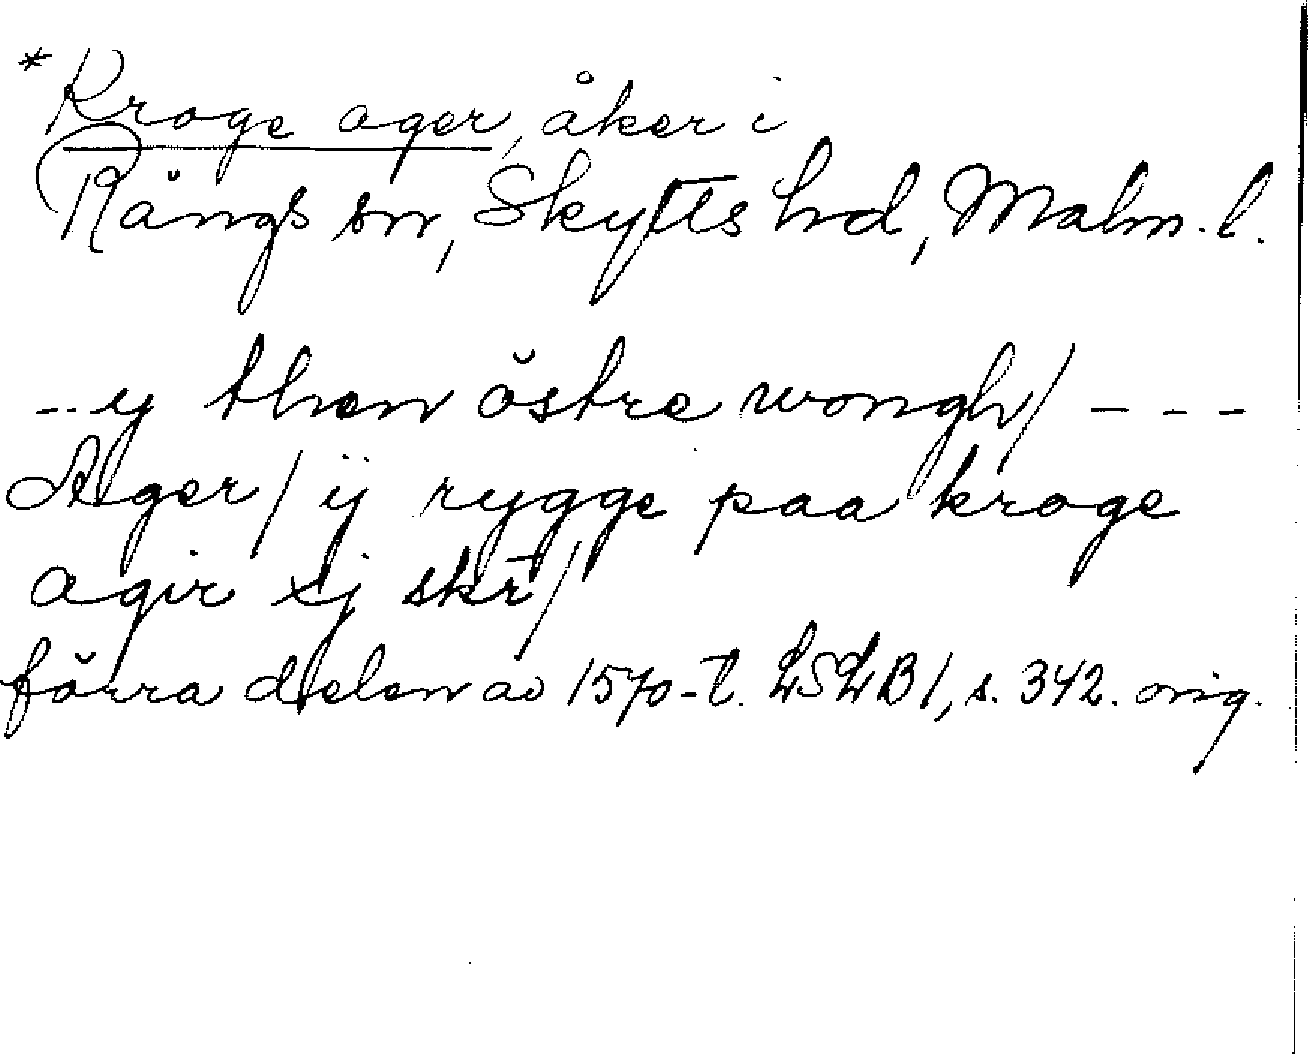 * Kroge ager, åker i
Rångs sn, Skytts hd, Malm. l.
--y then östre wongh/ ---
Ager/ ij rygge paa kroge
agir xj skr/
förra delen av 1570-t. LSLB 1, s. 342. orig.